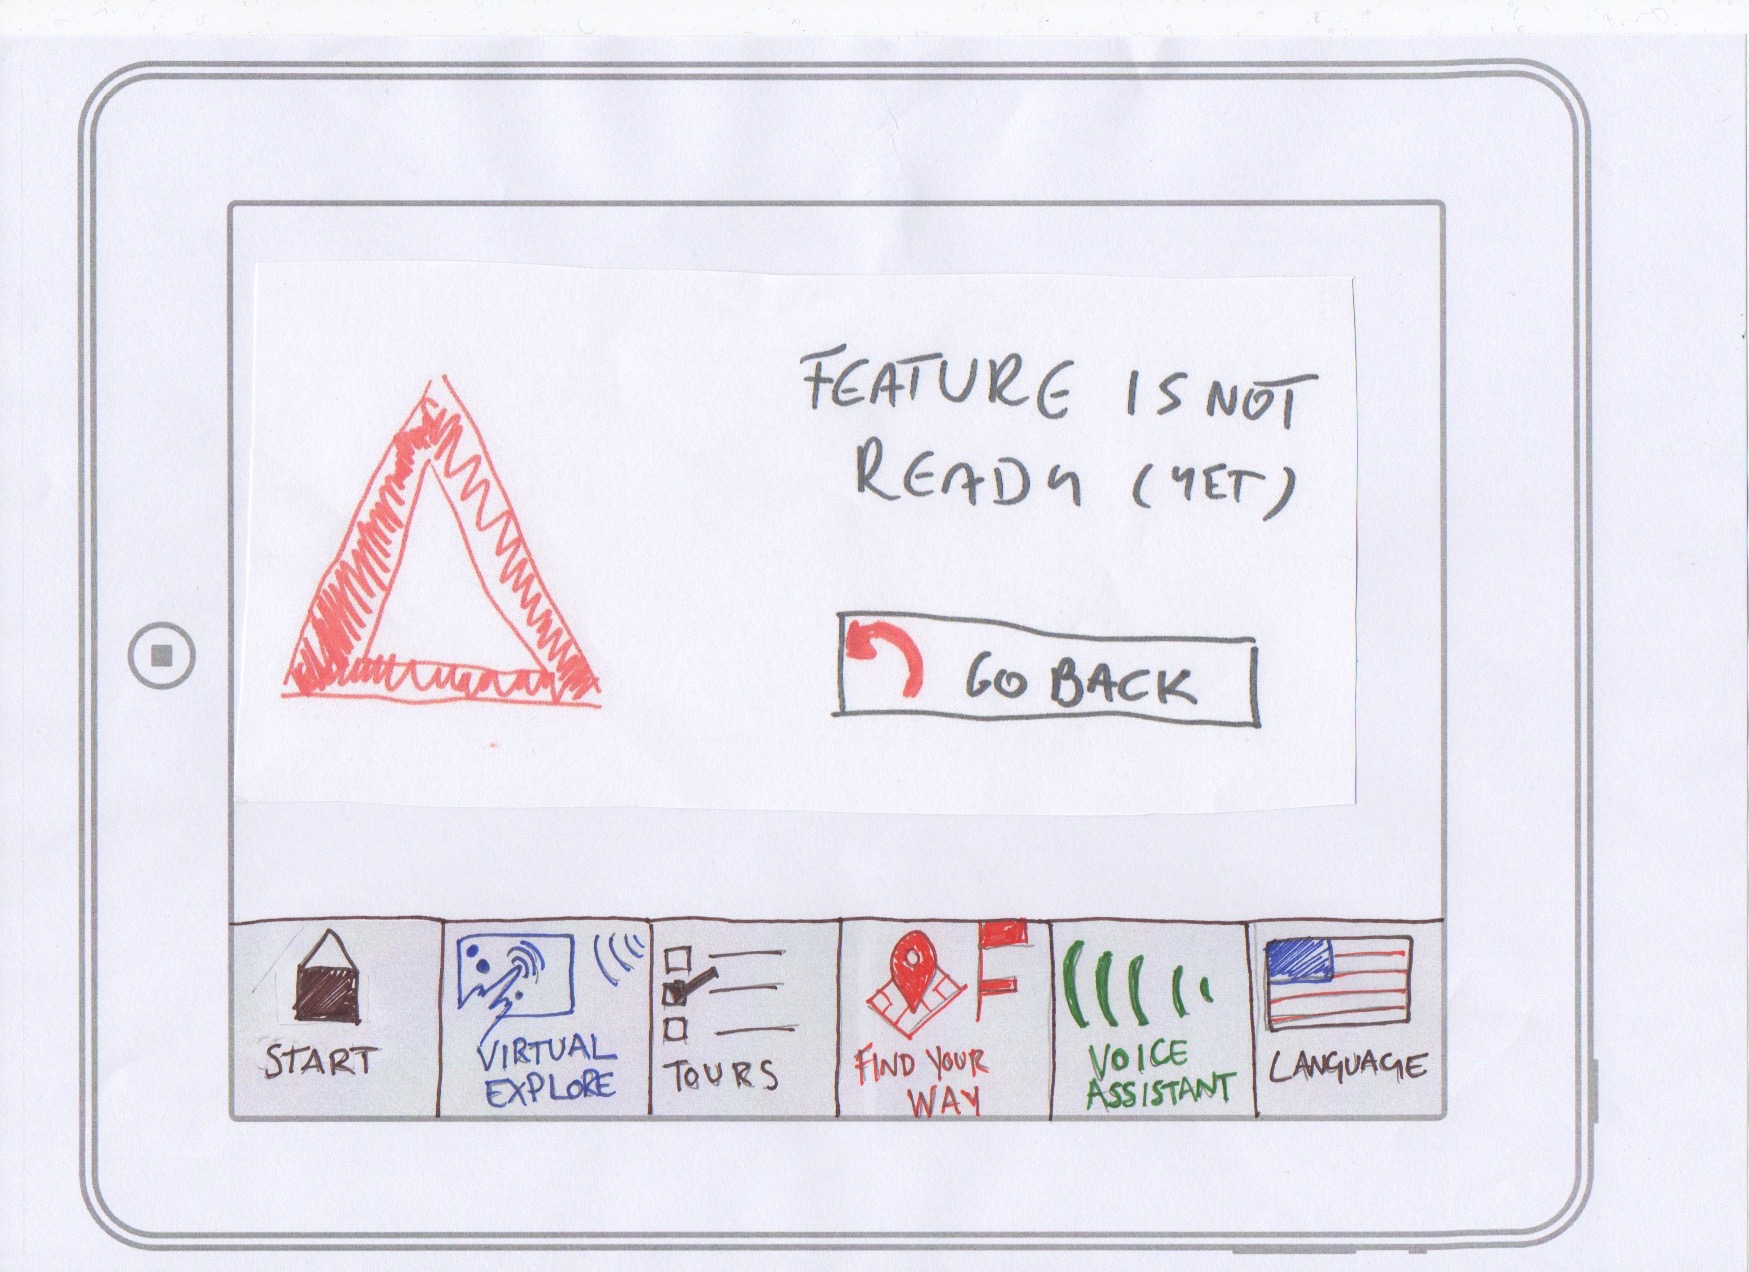 FEATURE IS NOT
READY (YET)
GO BACK
START
VIRTUAL
EXPLORE
TOURS
FIND YOUR
WAY
VOICE
ASSISTANT
LANGUAGE